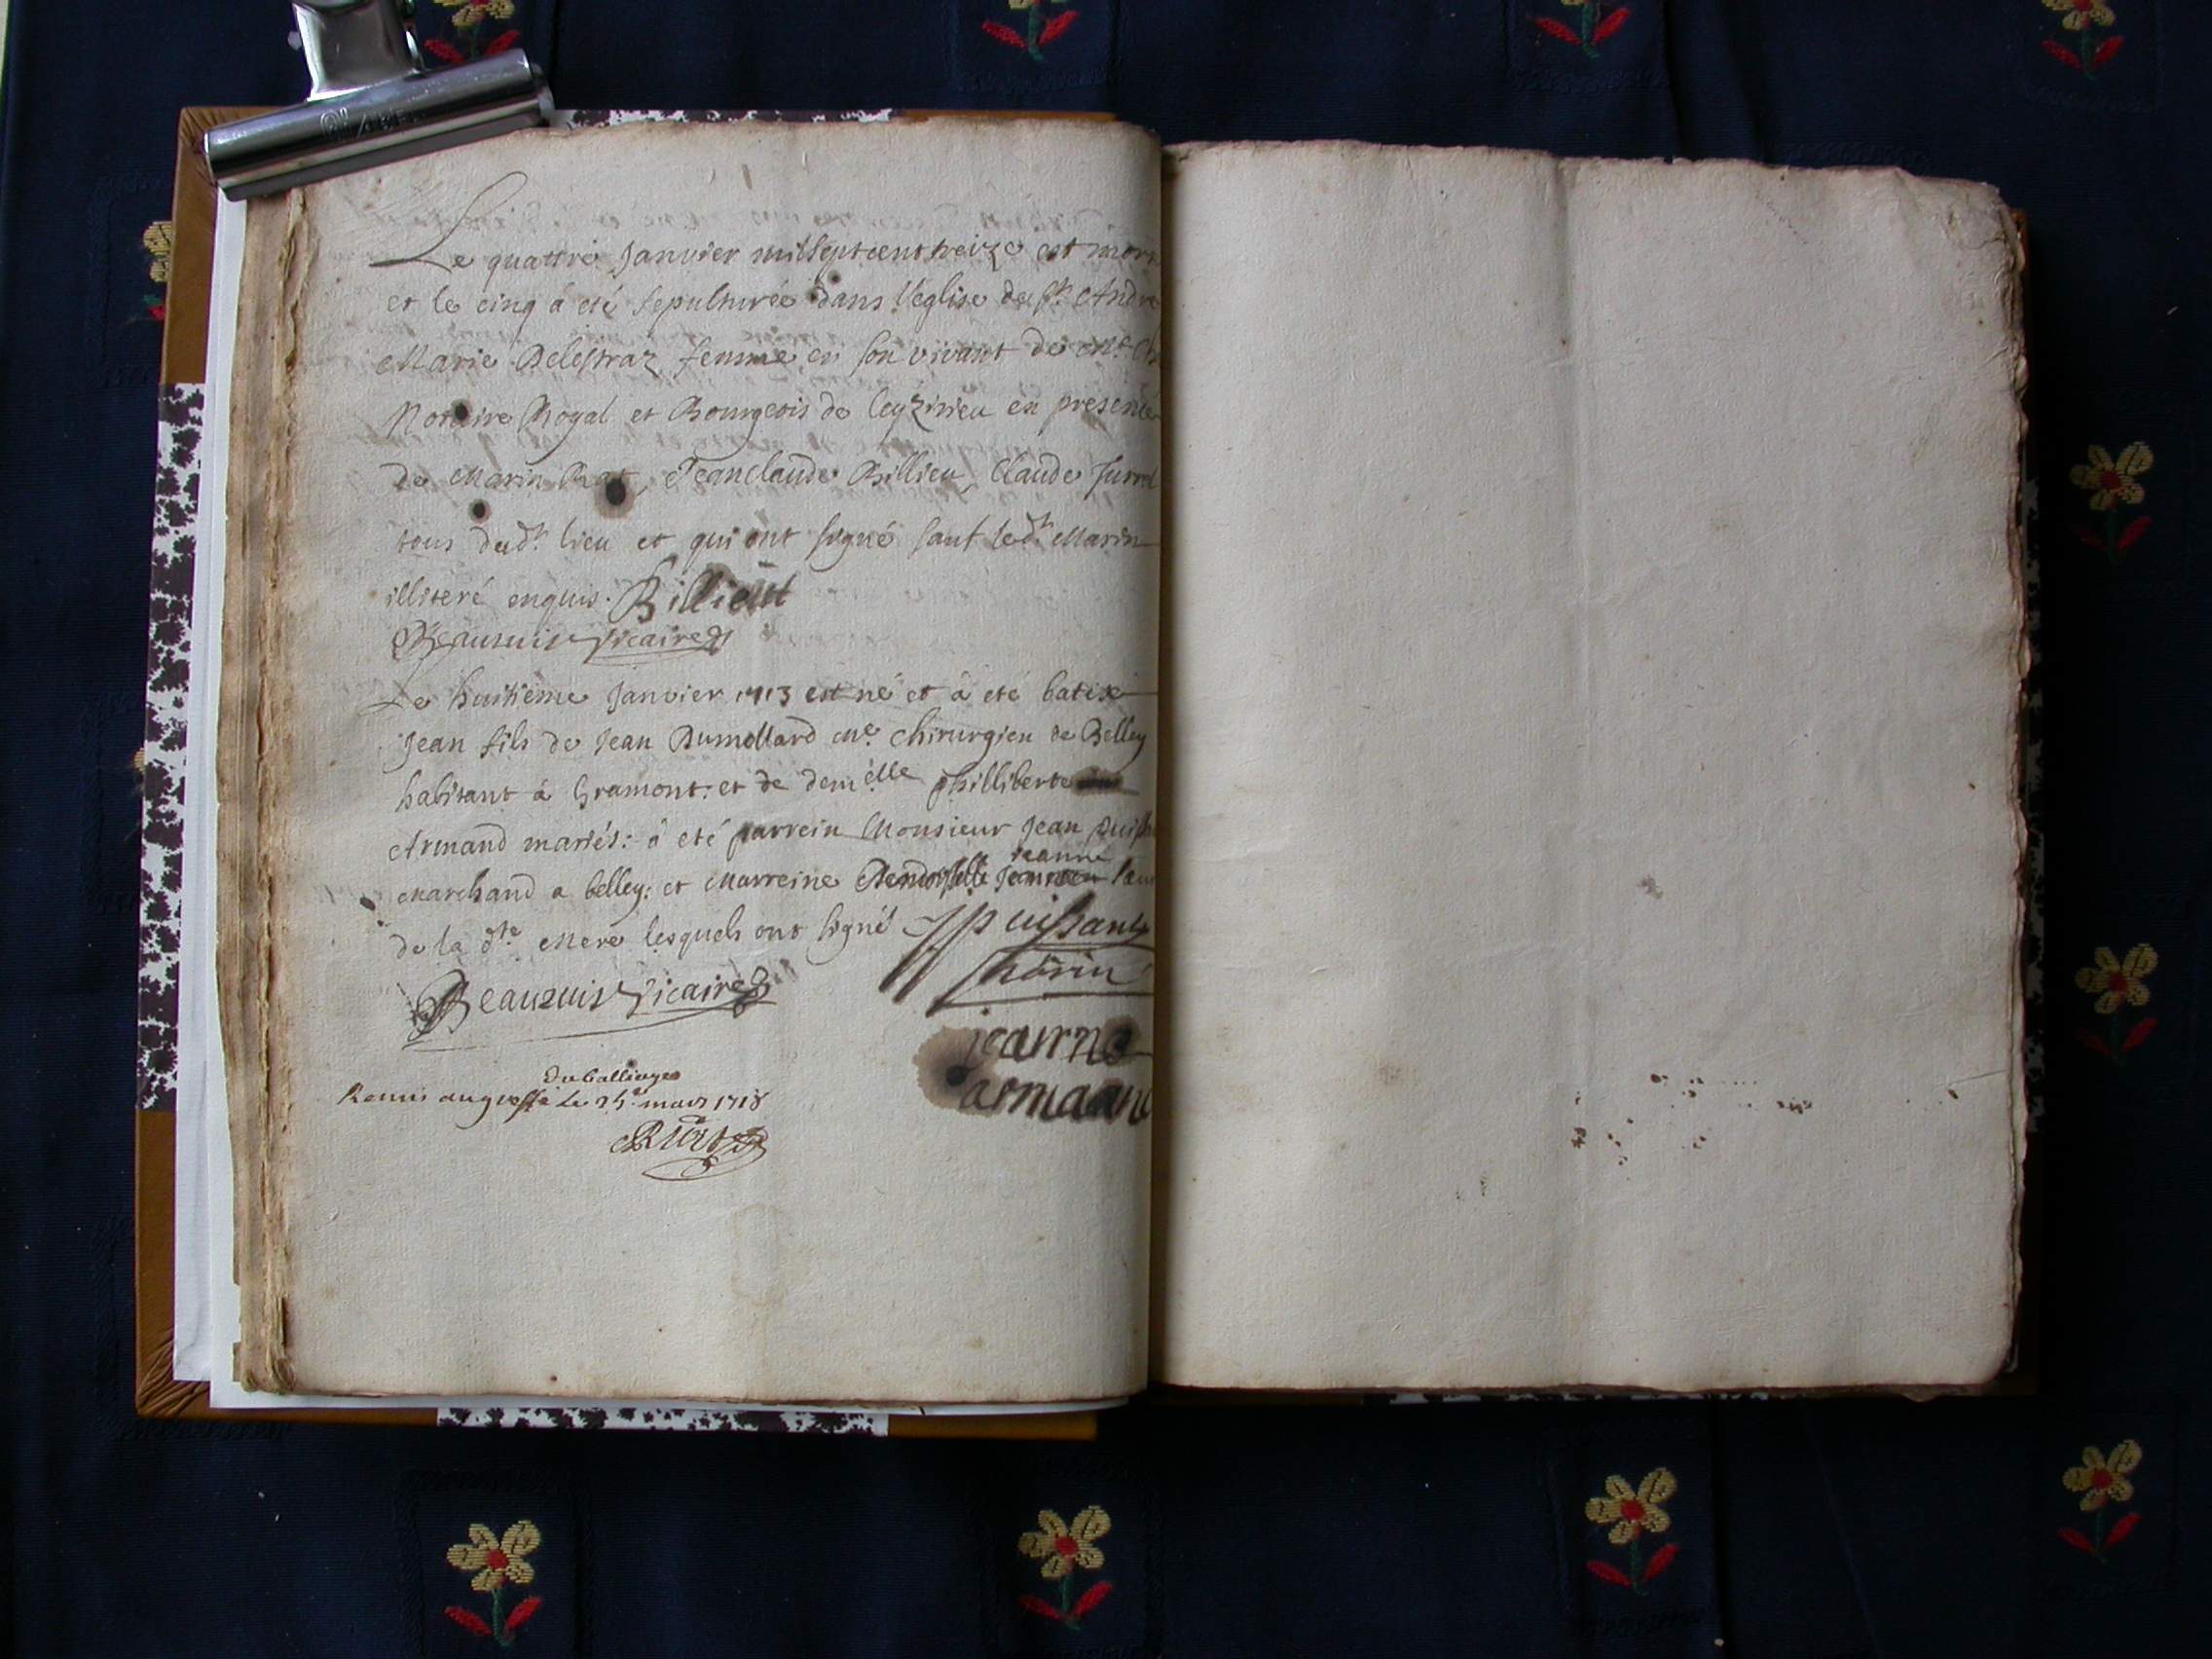 Le quattre Janvier mil sept cent treize est mort
et le cinq à eté sepulturée dans l'église de st. André
Marie femme en son vivant de
Notaire Royal et Bourgeois de en presence
de Marin Rat, Jean Claude Billieu, Claude
tous dudt. lieu et qui ont signé sauf ledt. Marin
illiteré enquis. Billieut
Beauzuis Vicaire
Le huitième Janvier 1713 est né et à eté batisé
Jean fils de Jean Dumollard me. Chirurgien de Belley
habitant à Gramont: et de demelle philliberte
Armand mariés: à eté parrein Monsieur Jean
jeanne
Marchand a belley: et Marreine Demoiselle
de la dte. Mere lesquels ont signé Puissant
Beauzuis Vicaire
jeanne
armaand
du balliage
Remis au greffe Le mars 1718